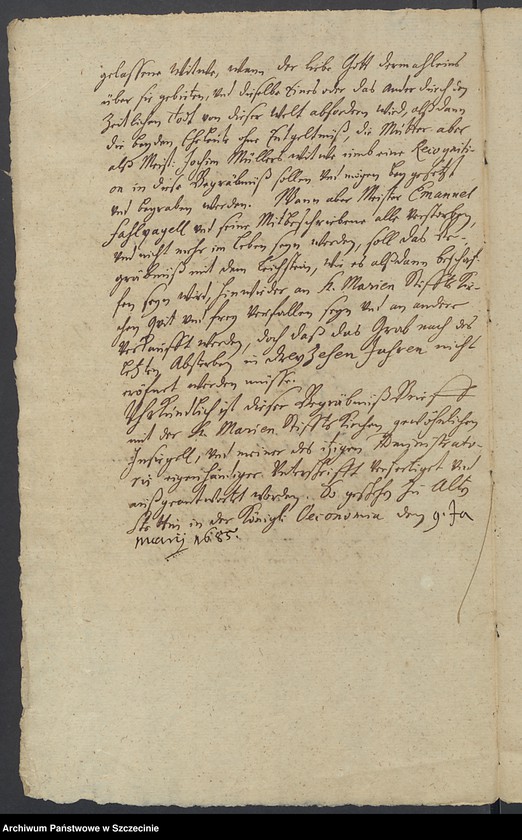 gelassene Witwe, wann der liebe Gott dermahleins
über sie gebieten, und dieselbe eines oder das ander durch den
Zeitlichen Todt von dieser Welt abfordern wird, alßdann
die beyden Eheleute ohne Entgeltniß, die Mutter aber
alß Meist. Jochim Müllers Witwe umb eine Recogniti-
on in diese Begräbniß sollen und mögen bey gesetzt
und begraben werden. Wann aber Meister Emanuel
Fahlpagell und seine Mitbeschriebene alle verstorben,
und nicht mehr im leben seyn werden, soll das Be-
gräbniß mit dem Leichstein, wie es alßdann beschaf-
fen seyn wird, hinwieder an St. Marien Stiffts Kir-
chen Quit und frey verfallen seyn und an andere
verkaufft werden, doch daß das Grab nach des
letzten Absterben in dreyZehen Jahren nicht
eröfnet werden müsse.
Uhrkundlich ist dieser Begräbniß Brief
mit der St. Marien Stiffts Kirchen gewöhnlichen
Insiegell, und meiner des itzigen Administrato-
ris eigenhändiger Unterschrifft verfertiget und
außgeantwortet worden. So geschehen zu Alten
Stettin in der Königl. Oeconomia den 9. Ja
nuarij 1685.
Archiwum Państwowe w Szczecinie